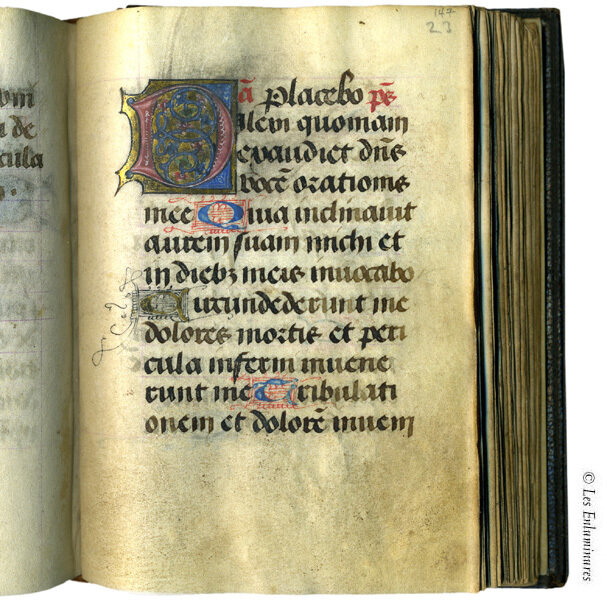 147
23
ā placebo ps̄
Dilexi quoniam
exaudiet dn̄s
vocē orationis
mee Quia inclinauit
aurem suam michi et
in diebꝫ meis inuocabo
Circundederunt me
dolores mortis et peri
cula inferni inuene
runt me Tribulati
onem et dolorē inueni
de
cula
© Les Enluminures